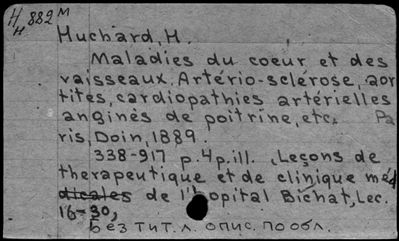 H 882 M
H
Huchard, H.
Maladies du coeur et des
vaisseaux. Artério-sclérose, aor
tites, cardiopathies artérielles
anginès de poitrine, etc. Pa
ris, Doin, 1889.
338-917 p. 4 p. ill. (Leçons de
therapeutique et de clinique méd
dicales de l'hopital Bichat, Lec.
16-30,
Без тит. л. опис. по обл.